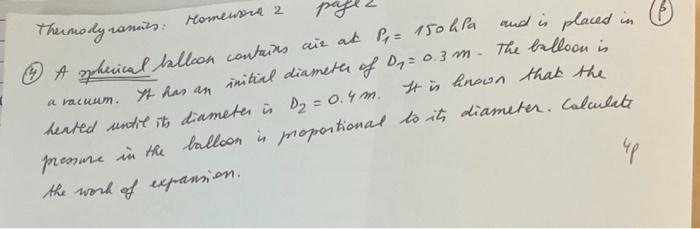 Thermodynamics: Homework 2 page 2
β
④ A spherical balloon contains air at P₁ = 150 hPa and is placed in
a vacuum. It has an initial diameter of D₁ = 0.3 m. The balloon is
heated until its diameter is D₂ = 0.4 m. It is known that the
pressure in the balloon is proportional to its diameter. Calculate
the work of expansion.
4p